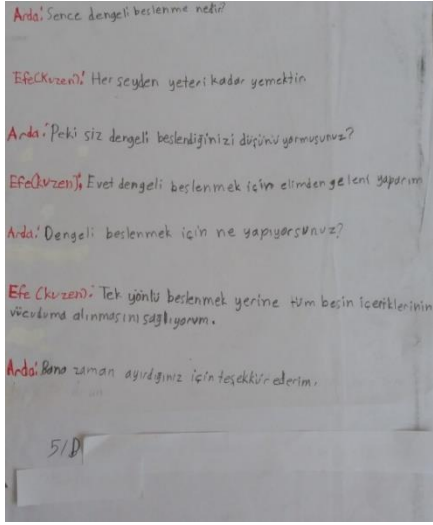 Arda: Sence dengeli beslenme nedir?
Efe(Kuzen): Her şeyden yeteri kadar yemektir.
Arda: Peki siz dengeli beslendiğinizi düşünüyormusunuz?
Efe(kuzen): Evet dengeli beslenmek için elimden geleni yaparım
Arda: Dengeli beslenmek için ne yapıyorsunuz?
Efe (kuzen): Tek yönlü beslenmek yerine tüm besin içeriklerinin
vücuduma alınmasını sağlıyorum.
Arda: Bana zaman ayırdığınız için teşekkür ederim.
5/D